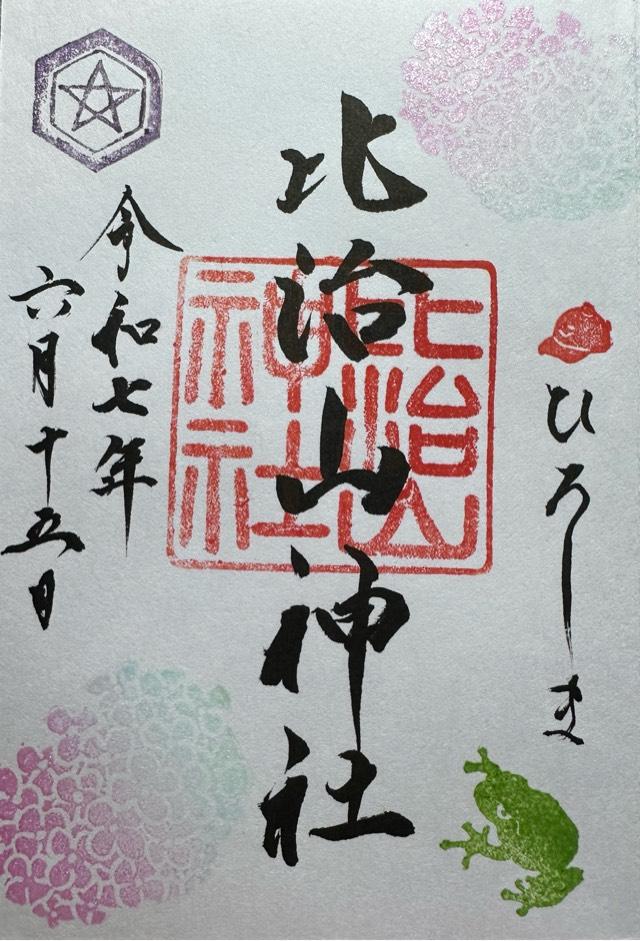 ひろしま
比治山神社
比治山
神社
令和七年
六月十五日